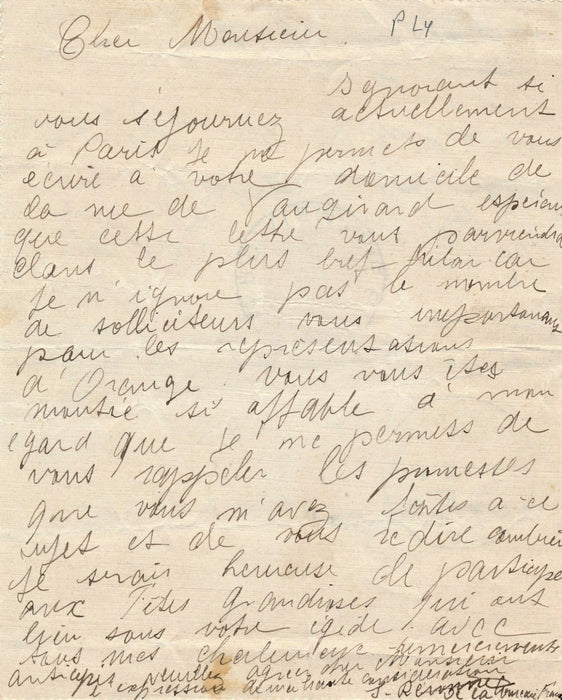 Cher Monsieur
P Ly
Ignorant si
vous séjournez actuellement
à Paris je me permets de vous
écrire à votre domicile de
la rue de Vaugirard espérant
que cette lettre vous parviendra
dans le plus bref délai car
je n'ignore pas le nombre
de solliciteurs vous importunant
pour les représentations
d'Orange. Vous vous êtes
montré si affable à mon
égard que je me permets de
vous rappeler les promesses
que vous m'avez faites à ce
sujet et de vous redire combien
je serais heureuse de participer
aux Fêtes grandioses qui ont
lieu sous votre égide. avec
tous mes chaleureux remerciements
anticipés veuillez agréer cher Monsieur
l'expression de ma haute considération